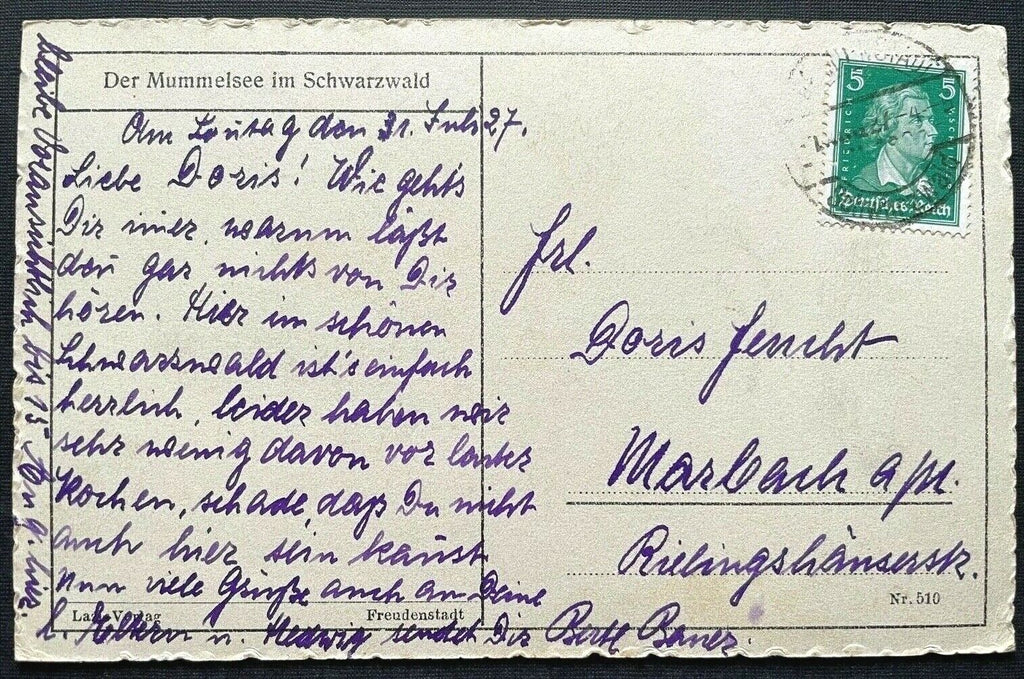 Der Mummelsee im Schwarzwald
Am Sontag den 31. Juli 27.
Liebe Doris! Wie gehts
Dir imer, warum läßt
den gar nichts von Dir
hören. Hier im schönen
Schwarzwald ist's einfach
herrlich, leider haben wir
sehr wenig davon vor lauter
Kochen, schade, daß Du nicht
auch hier sein kanst
Nun viele Grüße auch an Deine
l. Eltern u. Hedwig sendet Dir Bertl Bauer.
bleibe Voraussichtlich bis 15. Aug. hier.
Verlag
Freudenstadt
5 5
FRIEDRICH
Deutsches Reich
Frl.
Doris Feucht
Marbach a/N.
Rielingshäuserstr.
Nr. 510